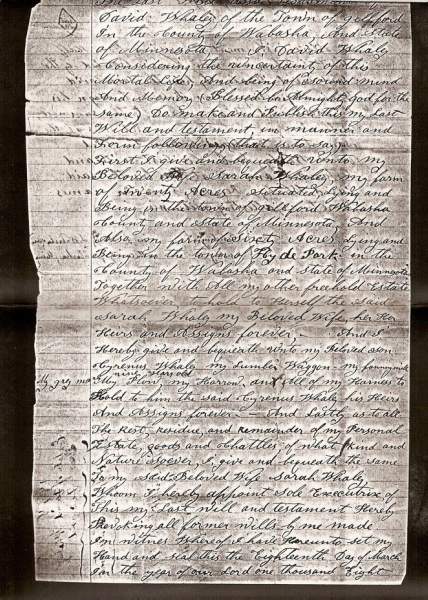 David Whaley of the Town of Gillford
In the County of Wabasha, And State
of Minnesota, I David Whaley
Considering the uncertainty of this
Mortal Life, And being of Sound mind
And Memory Blessed be Almighty God for the
Same, Do make and Publish this my Last
Will and testament, in manner and
Form following that is to say,
First I give and bequeath unto my
Beloved Wife Sarah Whaley, my farm
of Acres, situated, lying and
Being in the town of Gillford Wabasha
County and State of Minnesota, And
Also my farm of Sixty Acres lying and
Being in the town of Hyde Park in the
County of Wabasha and State of Minnesota
Together with All my other freehold Estate
Whatsoever to hold to Herself the Said
Sarah Whaley my Beloved Wife, her
Heirs and Assigns forever, And I
Hereby give and bequeath unto my Beloved Son
Cyrenus Whaley my Lumber Waggon - my
nine years old
My grey mare
My Plow, my Harrow, and All of my Harness to
Hold to him the said Cyrenus Whaley his Heirs
And Assigns forever — And Lastly as to all
The Rest, Residue, and remainder of my Personal
Estate, goods and Chattles of what kind and
Nature Soever, I give and bequeath the same
To my Said Beloved Wife Sarah Whaley
Whom I hereby appoint Sole Executrix of
This my Last will and testament Hereby
Revoking all former wills by me made
In witness Whereof I have hereunto set my
Hand and seal this the Eighteenth Day of March
In the year of our Lord one thousand Eight